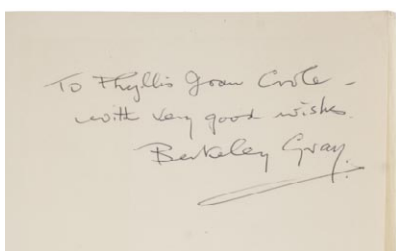 To Phyllis Joan Cook -
with very good wishes.
Berkeley Gray.